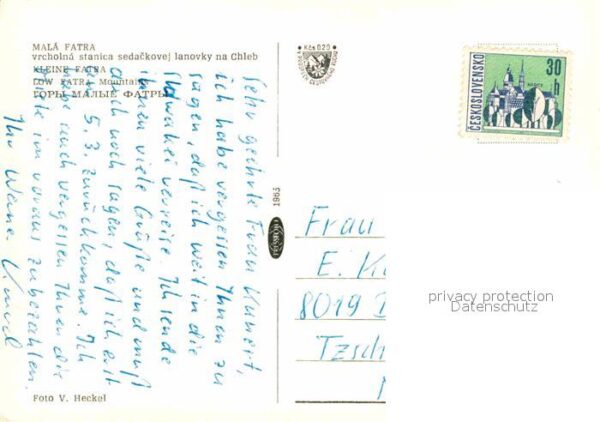 MALÁ FATRA
vrcholná stanica sedačkovej lanovky na Chleb
KLEINE FATRA
LOW FATRA Mountains
ГОРЫ МАЛЫЕ ФАТРЫ
Kčs 0,20
ČESKOSLOVENSKO
30
h
Sehr geehrte Frau Kunert,
ich habe vergessen Ihnen zu
sagen, daß ich weit in die
Slowakei verreise. Ich sende
Ihnen viele Grüße und muß
auch noch sagen, daß ich erst
am 5.3. zurückkomme. Ich
habe auch vergessen Ihnen die
Miete im voraus zu bezahlen.
Ihr Werner
1963
PRESSFOTO
Frau
E. K
8019
Tzsch
privacy protection
Datenschutz
Foto V. Heckel